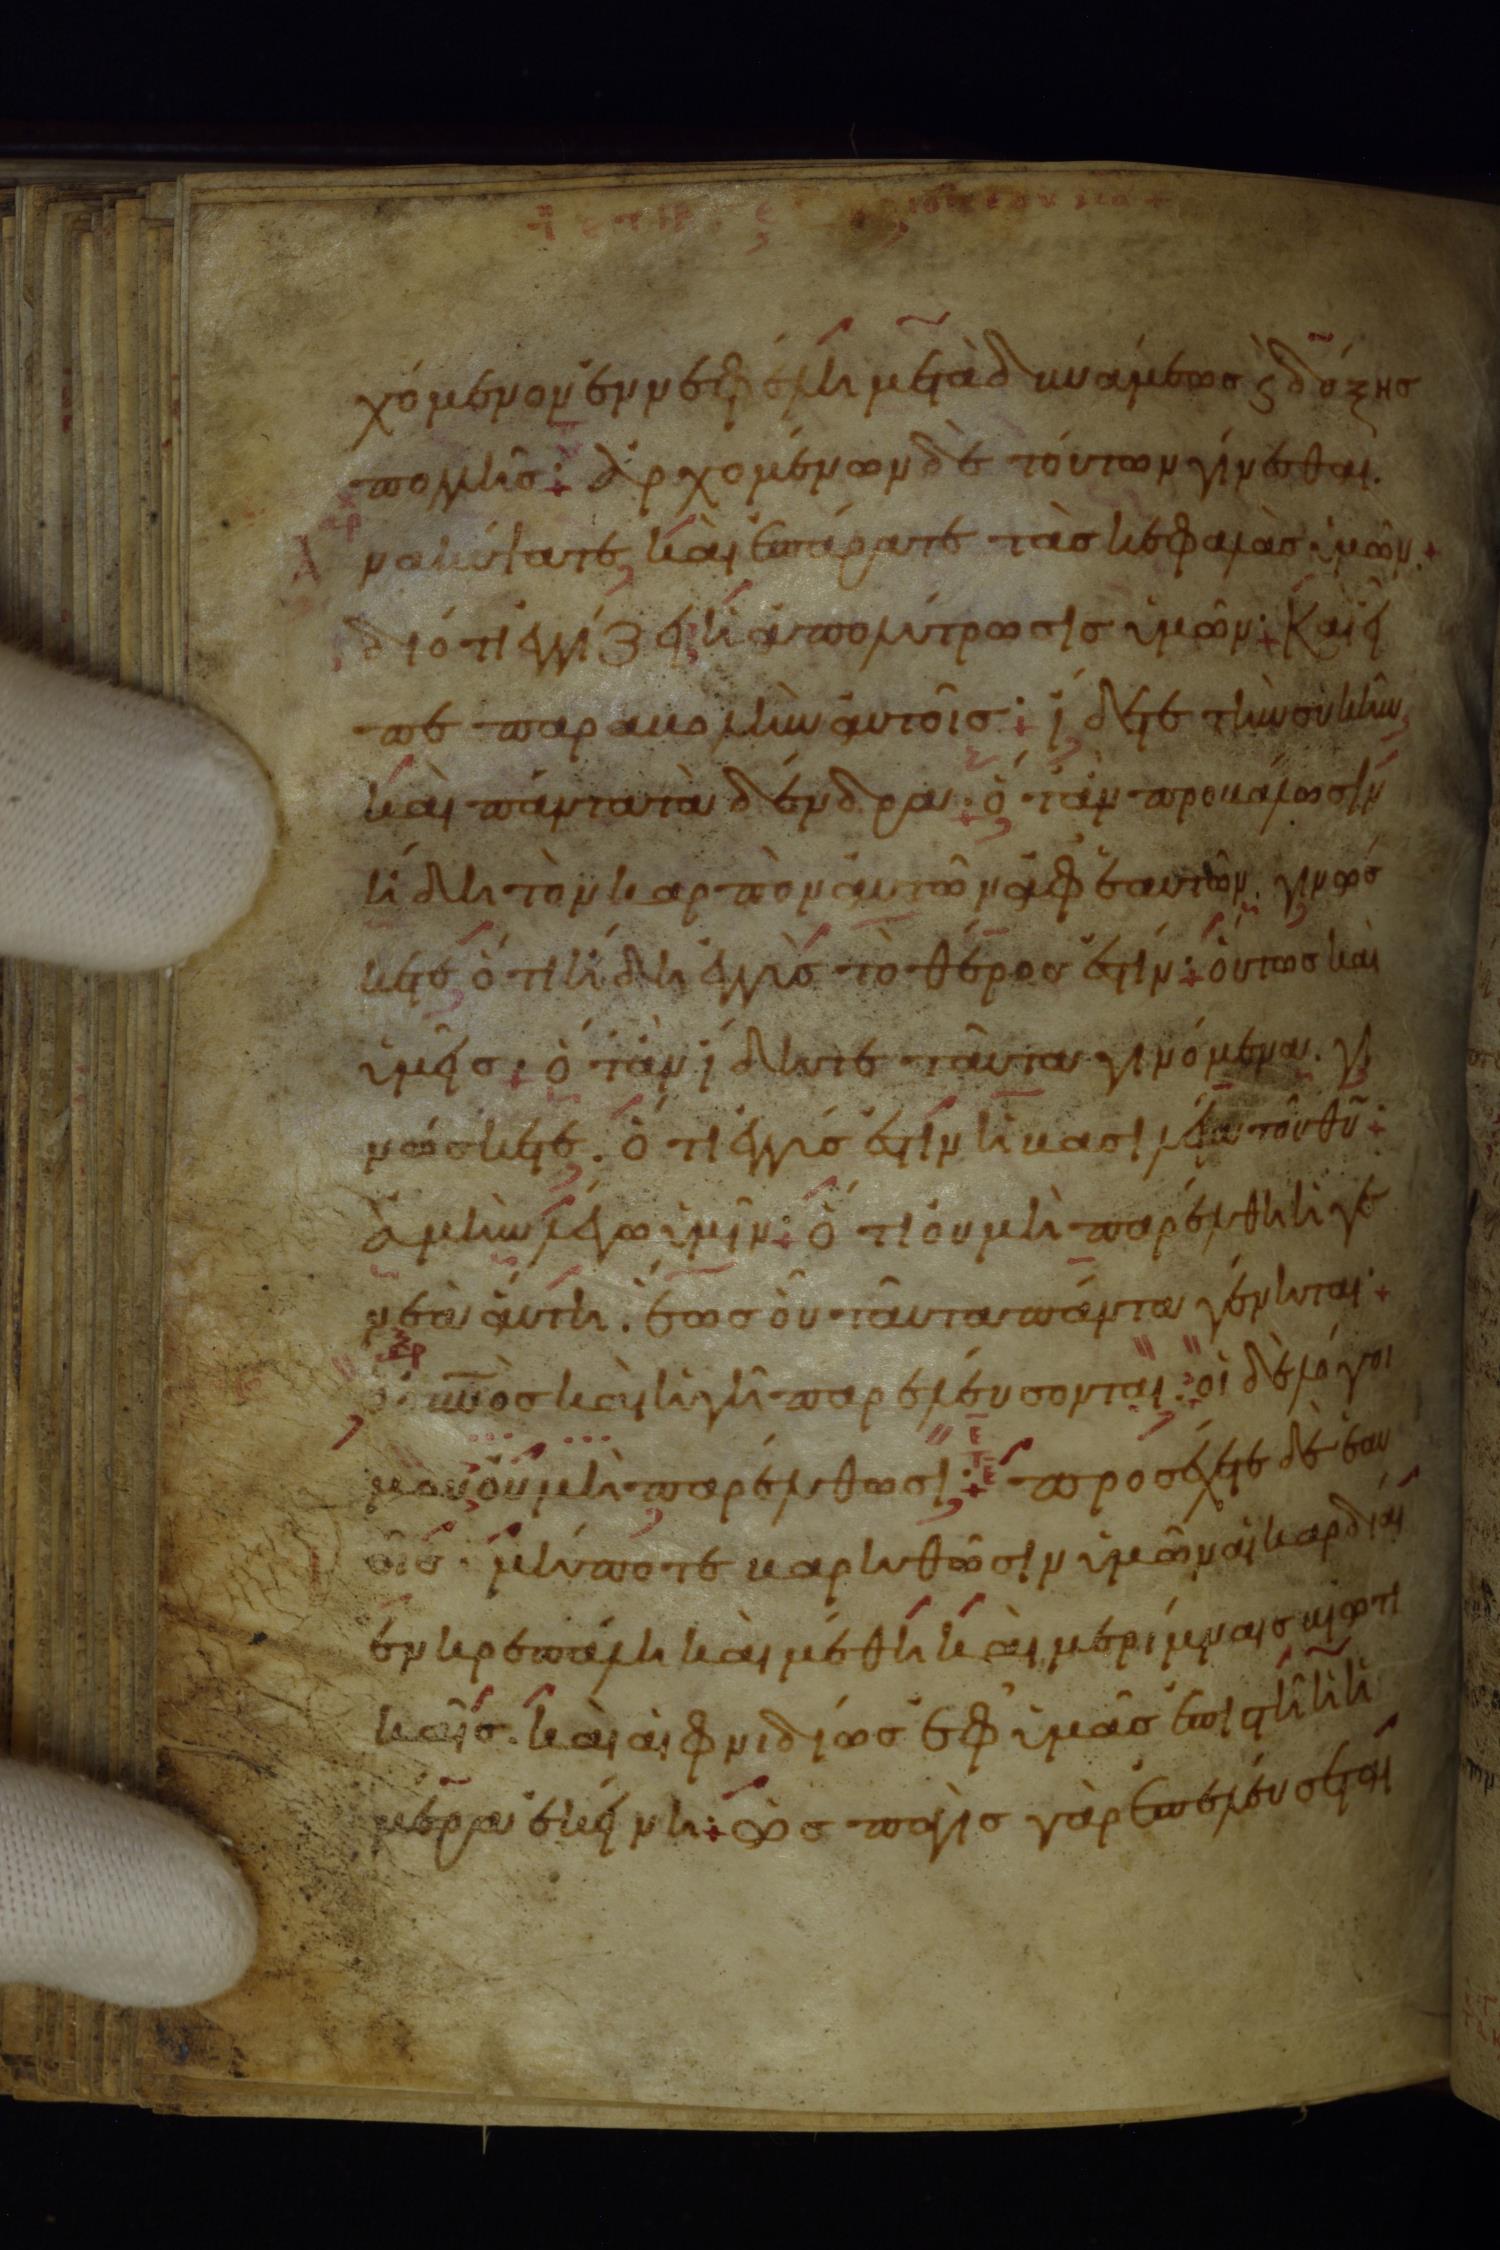 χόμενον ἐν νεφέλη μετὰ δυνάμεως ϗ δόξης
πολλῆς: ἀρχομένων δὲ τούτων γίνεσθαι.
νακύψατε καὶ ἐπάρατε τὰς κεφαλὰς ὑμῶν.
διότι ἐγγίζει ἡ ἀπολύτρωσις ὑμῶν: Καὶ εἶ
πε παραβολὴν αὐτοῖς: ἴδετε τὴν συκῆν
καὶ πάντα τὰ δένδρα: ὅταν προβάλωσιν
ἤδη τὸν καρπὸν αὐτῶν ἀφ ἑαυτῶν. γινώσ
κετε ὅτι ἤδη ἐγγὺς τὸ θέρος ἐστίν: οὕτως καὶ
ὑμεῖς: ὅταν ἴδητε ταῦτα γινόμενα. γι
νώσκετε. ὅτι ἐγγύς ἐστιν ἡ βασιλεία τοῦ θυ:
ἀμὴν λέγω ὑμῖν: ὅτι οὐ μὴ παρέλθη ἡ γε
νεὰ αὕτη. ἕως οὗ ταῦτα πάντα γένηται:
ὁ οὐνος καὶ ἡ γῆ παρελεύσονται: οἱ δὲ λόγοι
μου οὐ μὴ παρέλθωσι: προσέχετε δὲ ἑαυ
τοῖς. μήποτε βαρηθῶσιν ὑμῶν αἱ καρδίαι
ἐν κρεπάλη καὶ μέθη καὶ μερίμναις βιωτι
καῖς. καὶ αἰφνιδίως ἐφ ὑμᾶς ἐπιστῆ ἡ ἡ
μέρα ἐκείνη: ὡς παγὶς γὰρ ἐπελεύσεται